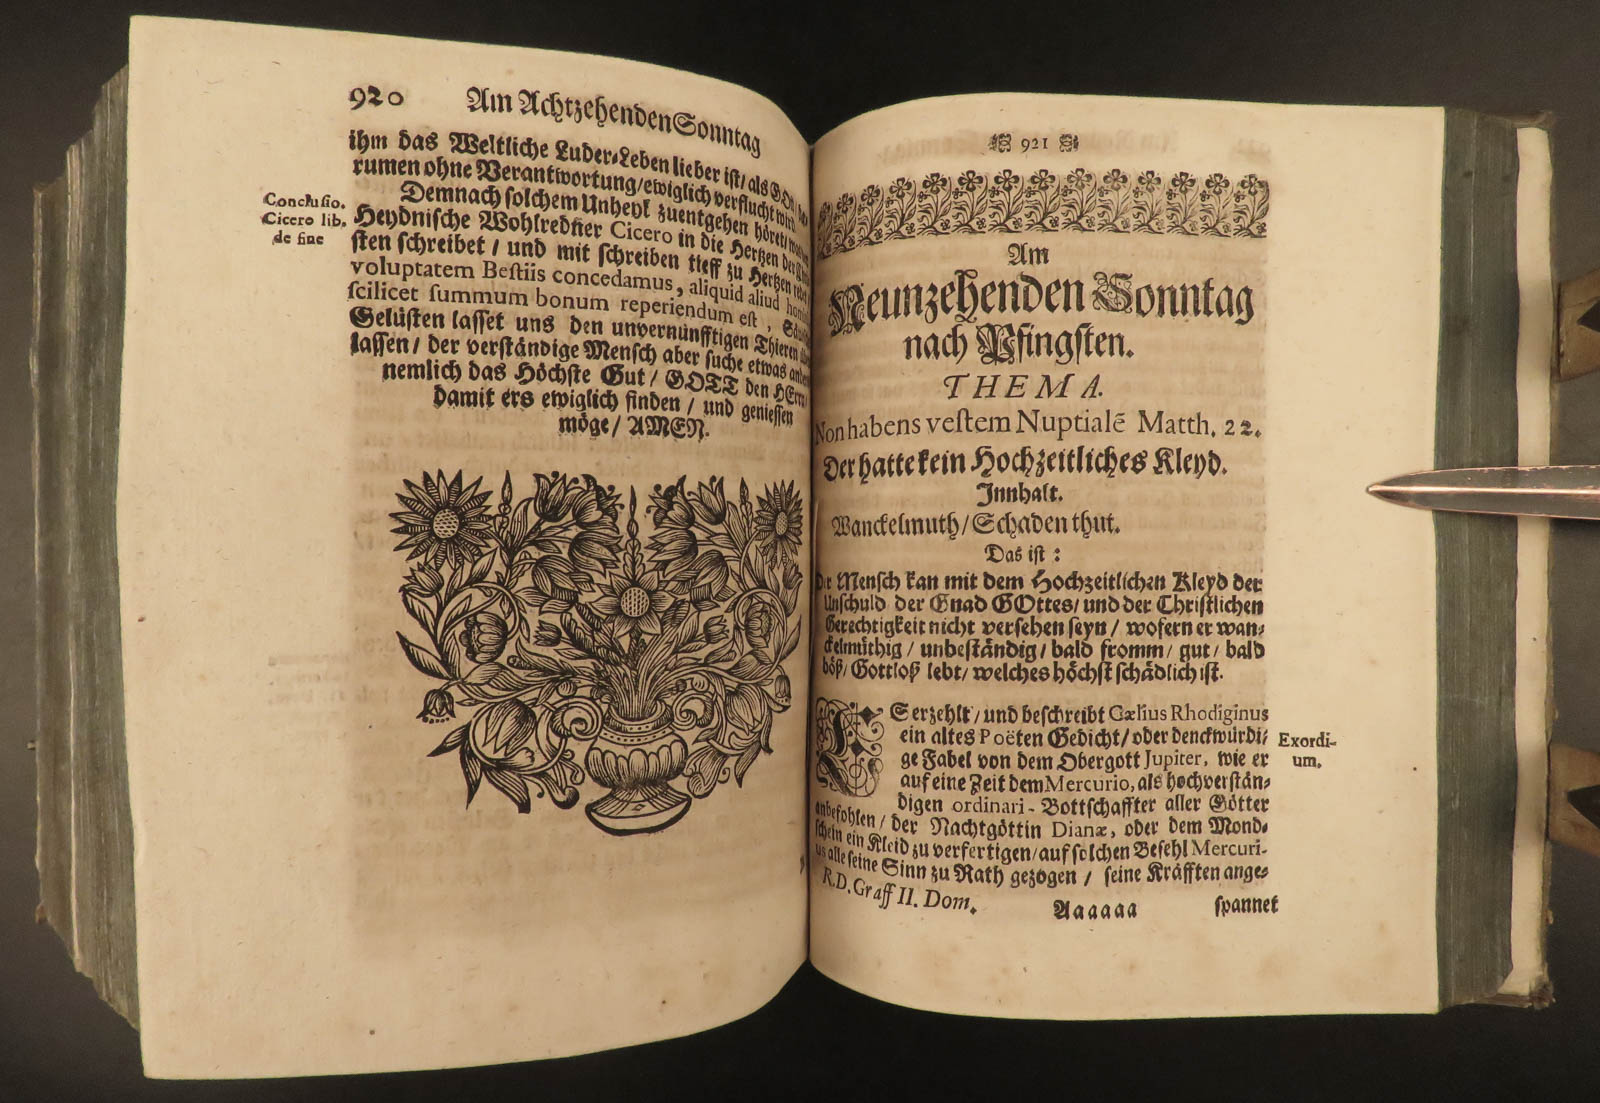 920 Am Achtzehenden Sonntag
ihm das Weltliche Luder-Leben lieber ist/ als
rumen ohne Verantwortung/ewiglich verflucht wird
Demnach solchem Unheyl zuentgehen höret/
Conclusio.
Cicero lib.
de fine
Heydnische Wohlredner Cicero in die Hertzen der
sten schreibet / und mit schreiben tieff zu Hertzen
voluptatem Bestiis concedamus, aliquid aliud
scilicet summum bonum reperiendum est,
Gelüsten lasset uns den unvernünfftigen Thieren
lassen/ der verständige Mensch aber suche etwas
nemlich das Höchste Gut/ GOTT den HErrn/
damit ers ewiglich finden / und geniessen
möge/ AMEN.
921
Am
Neunzehenden Sonntag
nach Pfingsten.
THEMA.
Non habens vestem Nuptialē Matth. 22.
Der hatte kein Hochzeitliches Kleyd.
Innhalt.
Wanckelmuth/Schaden thut.
Das ist:
Der Mensch kan mit dem Hochzeitlichen Kleyd der
Unschuld der Gnad GOttes/ und der Christlichen
Gerechtigkeit nicht versehen seyn / wofern er wan-
ckelmüthig / unbeständig/ bald fromm/ gut/ bald
böß/ Gottloß lebt/ welches höchst schädlich ist.
ES erzehlt / und beschreibt Cælius Rhodiginus
ein altes Poëten Gedicht/ oder denckwürdi-
ge Fabel von dem Obergott Jupiter, wie er
auf eine Zeit dem Mercurio, als hochverstän-
digen ordinari-Bottschaffter aller Götter
anbefohlen/ der Nachtgöttin Dianæ, oder dem Mond-
schein ein Kleid zu verfertigen/auf solchen Befehl Mercuri-
us alle seine Sinn zu Rath gezogen / seine Kräfften ange-
Exordi-
um.
R.D. Graff II. Dom. Aaaaaa spannet